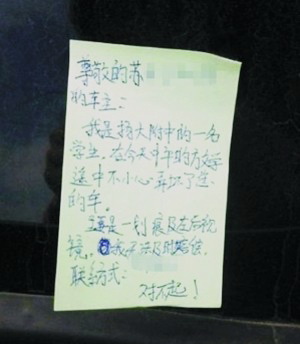 尊敬的苏
的车主：
我是扬大附中的一名
学生，在今天中午的方文学
途中不小心弄坏了您
的车。
主要是一划痕及左后视
镜，我无法及时赔偿
联系方式：
对不起！